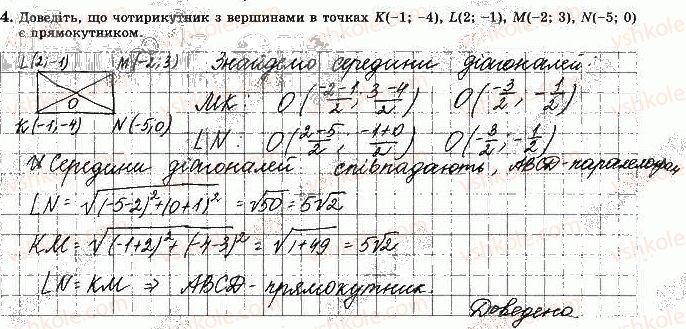 4. Доведіть, що чотирикутник з вершинами в точках K(−1; −4), L(2; −1), M(−2; 3), N(−5; 0)
є прямокутником.
L(2,-1) M(-2,3) Знайдемо середини діагоналей:
O
MK: O(-2-1/2; 3-4/2) O(-3/2; -1/2)
K(-1,-4) N(-5,0)
LN: O(2-5/2; -1+0/2) O(-3/2; -1/2)
Середини діагоналей співпадають, ABCD-паралелограм
LN = √((-5-2)²+(0+1)²) = √50 = 5√2
KM = √((-1+2)²+(-4-3)²) = √1+49 = 5√2
LN = KM ⇒ ABCD-прямокутник.
Доведено